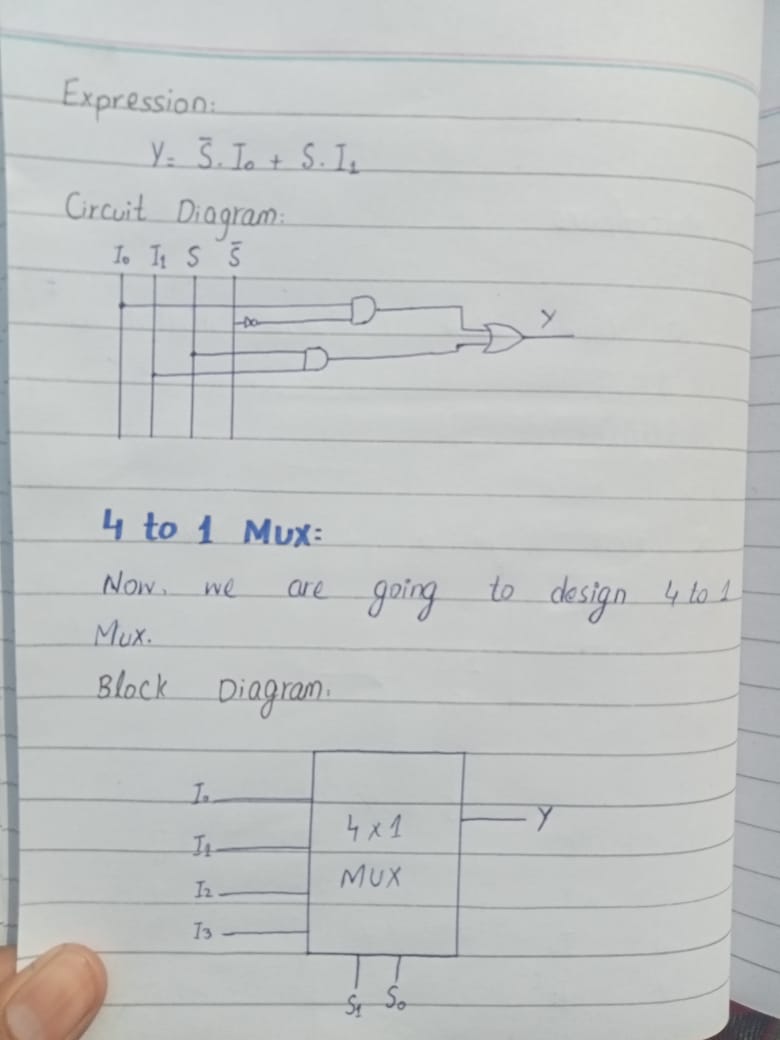 Expression:
Y = S̄. I₀ + S. I₁
Circuit Diagram:
I₀ I₁ S S̄
Y
4 to 1 Mux:
Now, we are going to design 4 to 1
Mux.
Block Diagram.
I₀
4x1
Y
I₁
MUX
I₂
I₃
S₁ S₀